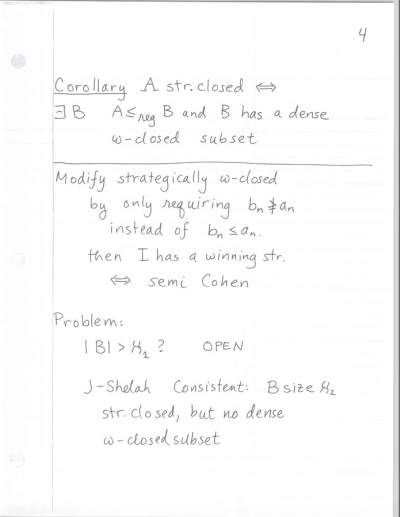 4
Corollary A str. closed ⇔
∃B A ≤reg B and B has a dense
ω-closed subset
Modify strategically ω-closed
by only requiring bₙ ≱ aₙ
instead of bₙ ≤ aₙ.
then I has a winning str.
⇔ semi Cohen
Problem:
|B| > ℵ₁ ? OPEN
J-Shelah Consistent: B size ℵ₂
str. closed, but no dense
ω-closed subset